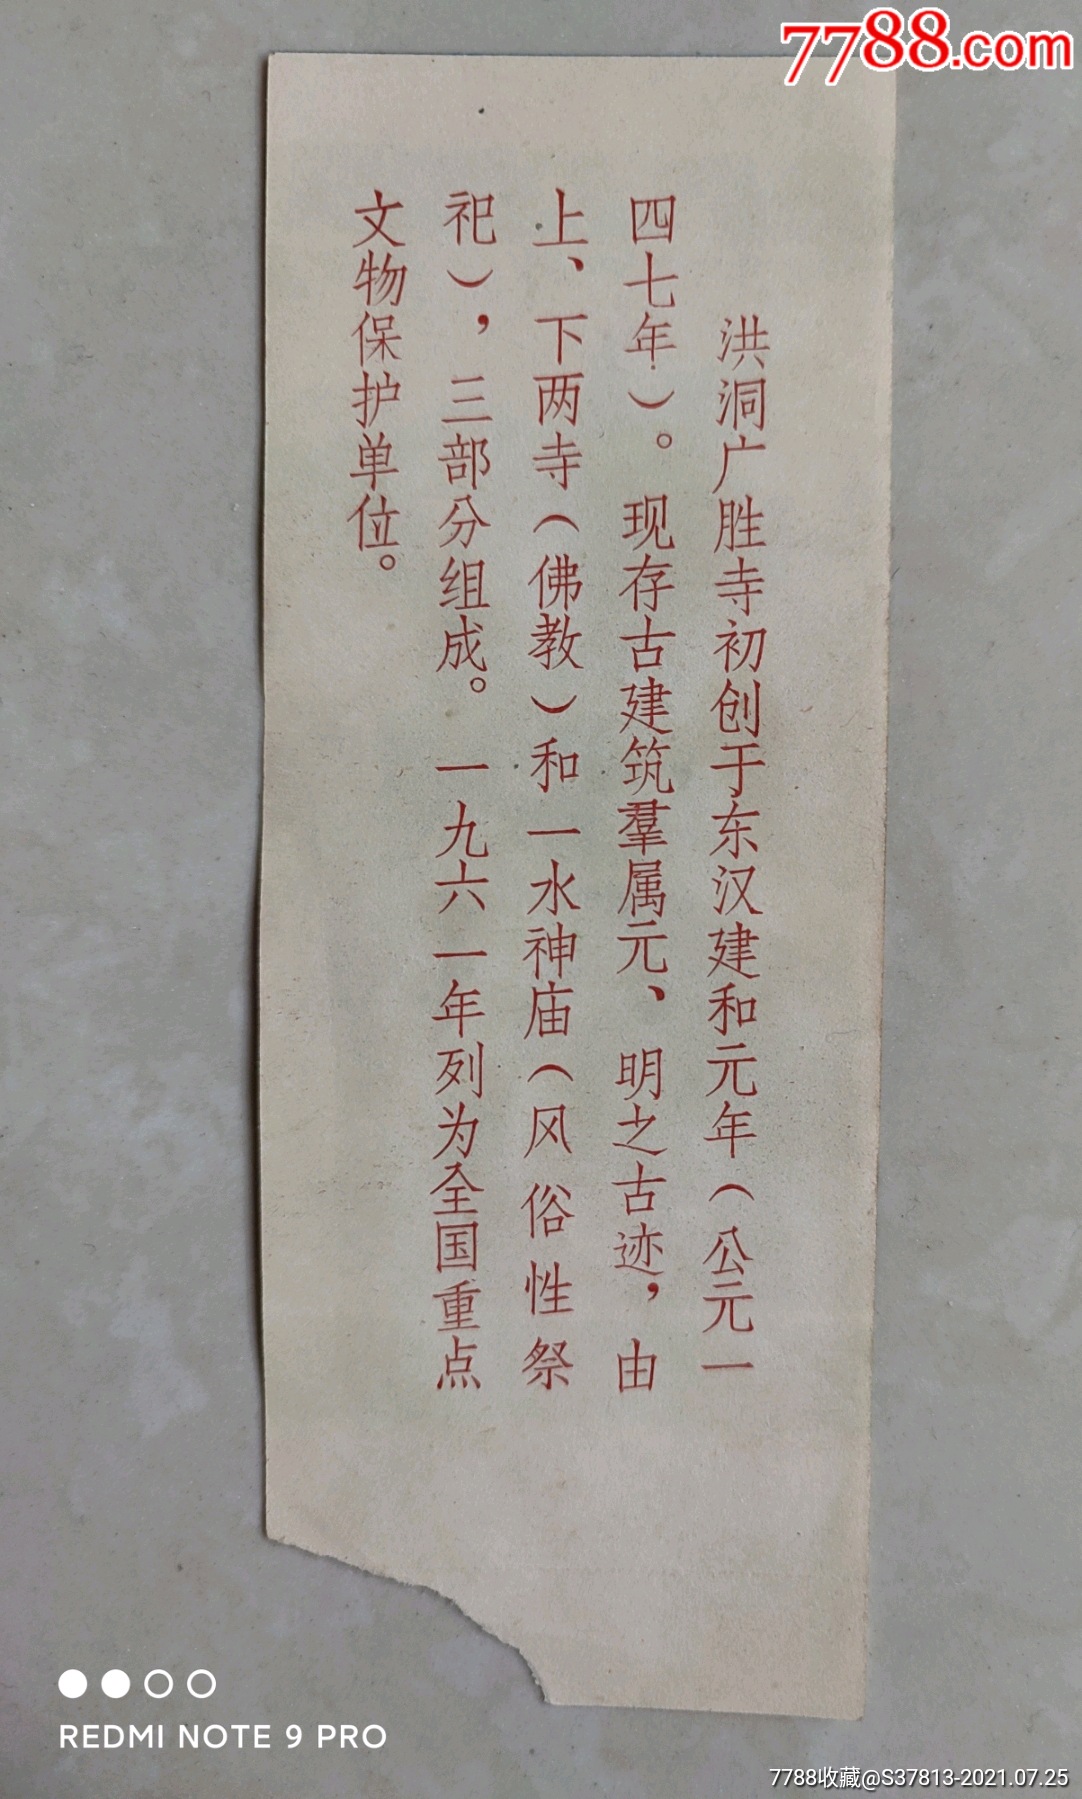 7788.com
洪洞广胜寺初创于东汉建和元年（公元一
四七年）。现存古建筑羣属元、明之古迹，由
上、下两寺（佛教）和一水神庙（风俗性祭
祀），三部分组成。一九六一年列为全国重点
文物保护单位。
REDMI NOTE 9 PRO
7788收藏@S37813-2021.07.25